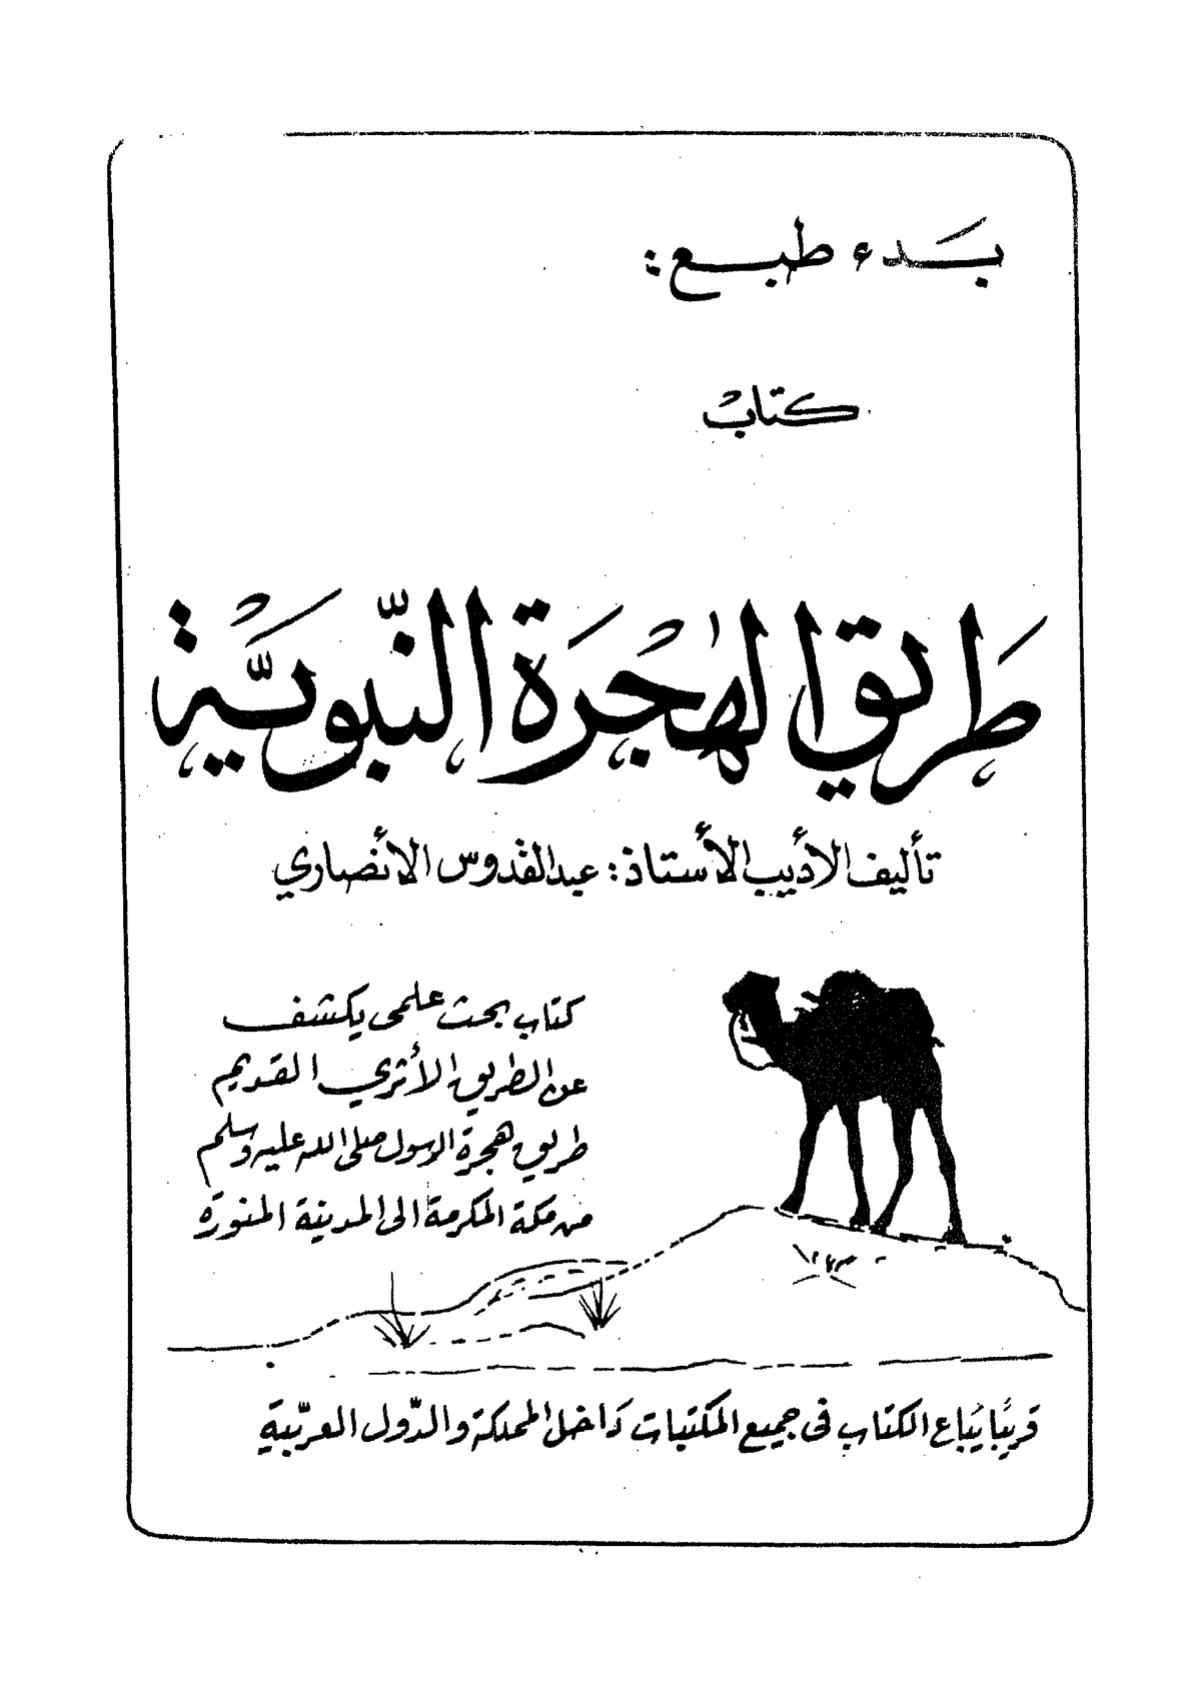 بدء طبع :
كتاب
طريق الهجرة النبوية
تأليف الأديب الأستاذ : عبد القدوس الأنصاري
كتاب بحث علمى يكشف
عن الطريق الأثري القديم
طريق هجرة الرسول صلى الله عليه وسلم
من مكة المكرمة الى المدينة المنورة
قريبًا يُباع الكتاب فى جميع المكتبات داخل المملكة والدّول العربيّة